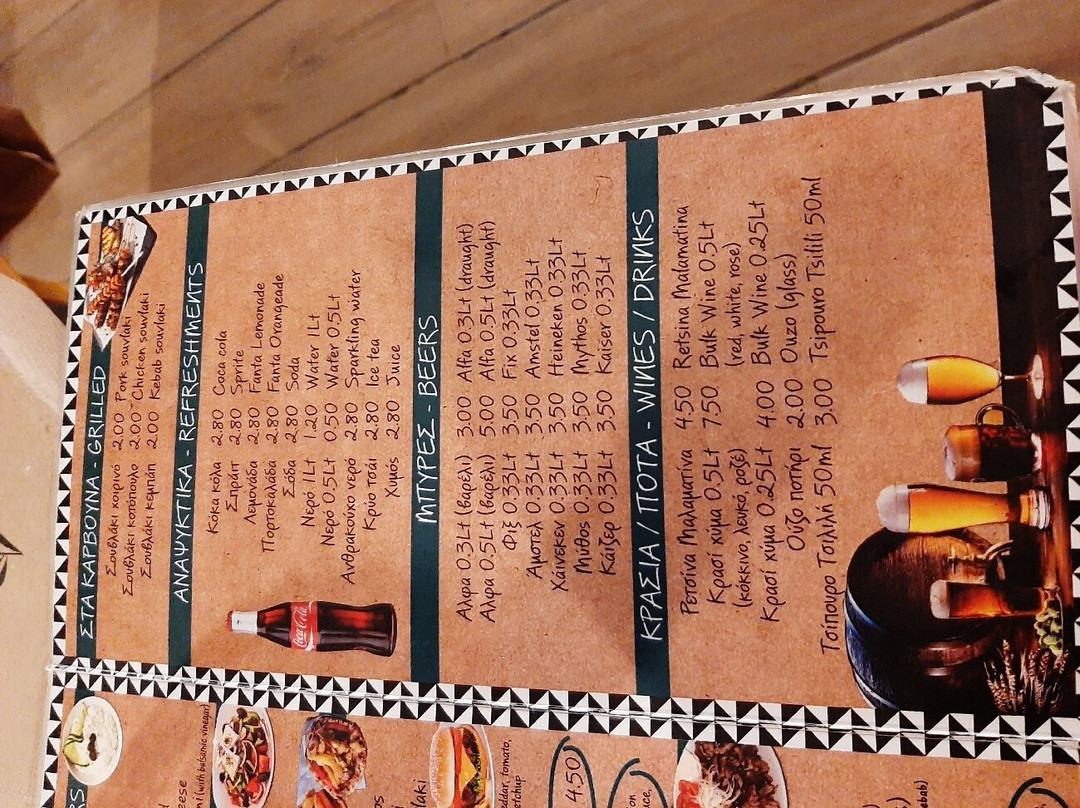 ΣΤΑ ΚΑΡΒΟΥΝΑ - GRILLED
Σουβλάκι χοιρινό 2.00 Pork souvlaki
Σουβλάκι κοτόπουλο 2.00 Chicken souvlaki
Σουβλάκι κεμπάπ 2.00 Kebab souvlaki
ΑΝΑΨΥΚΤΙΚΑ - REFRESHMENTS
Κόκα κόλα 2.80 Coca cola
Σπράιτ 2.80 Sprite
Λεμονάδα 2.80 Fanta Lemonade
Πορτοκαλάδα 2.80 Fanta Orangeade
Σόδα 2.80 Soda
Νερό 1Lt 1.20 Water 1Lt
Νερό 0.5Lt 0.50 Water 0.5Lt
Ανθρακούχο νερό 2.80 Sparkling water
Κρύο τσάι 2.80 Ice tea
Χυμός 2.80 Juice
Coca-Cola
ΜΠΥΡΕΣ - BEERS
Άλφα 0.3Lt (βαρέλι) 3.00 Alfa 0.3Lt (draught)
Άλφα 0.5Lt (βαρέλι) 5.00 Alfa 0.5Lt (draught)
Φιξ 0.33Lt 3.50 Fix 0.33Lt
Άμστελ 0.33Lt 3.50 Amstel 0.33Lt
Χάινεκεν 0.33Lt 3.50 Heineken 0.33Lt
Μύθος 0.33Lt 3.50 Mythos 0.33Lt
Κάιζερ 0.33Lt 3.50 Kaiser 0.33Lt
ΚΡΑΣΙΑ / ΠΟΤΑ - WINES / DRINKS
Ρετσίνα Μαλαματίνα 4.50 Retsina Malamatina
Κρασί χύμα 0.5Lt 7.50 Bulk Wine 0.5Lt
(κόκκινο, λευκό, ροζέ) (red, white, rose)
Κρασί χύμα 0.25Lt 4.00 Bulk Wine 0.25Lt
Ούζο ποτήρι 2.00 Ouzo (glass)
Τσίπουρο Τσιλιλή 50ml 3.00 Tsipouro Tsilili 50ml
(with balsamic vinegar)
tomato,
4.50